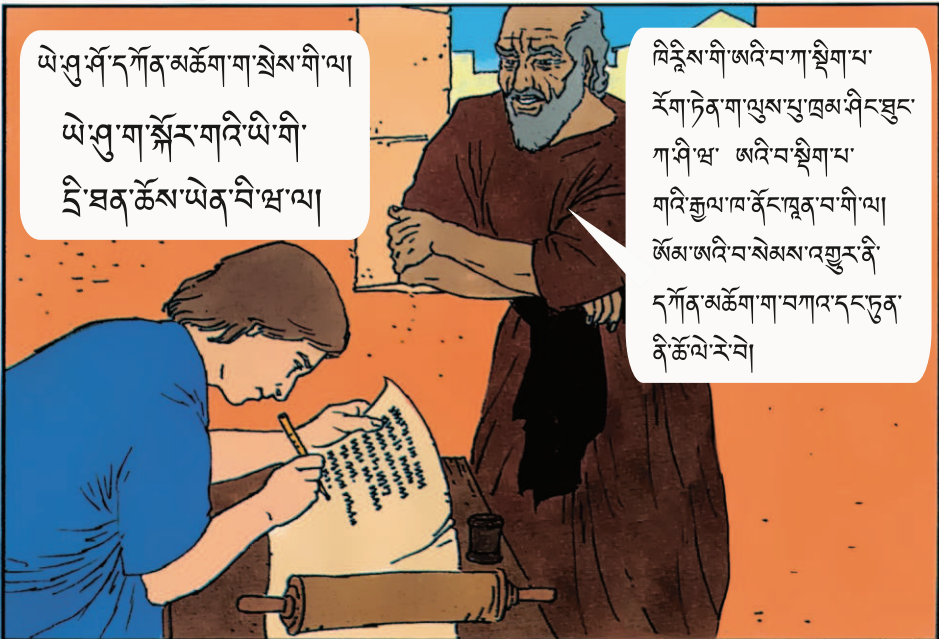 ཡེ་ཤུ་ཤོ་དཀོན་མཆོག་ག་སྲེས་གི་ལ།
ཡེ་ཤུ་ག་སྐོར་གའི་ཡི་གི་
དྲི་ཐན་ཚོས་ཡེན་བི་ཝ་ལ།
ཁིརཱིས་གི་ཨའི་བ་ཀ་སྡིག་པ་
རོག་ཏེན་ག་ལུས་པུ་ཁྲམ་ཤིང་ཐུང་
ཀ་ཤི་ཝ་ ཨའི་བ་སྡིག་པ་
གའི་རྒྱལ་ཁ་ནོང་ཁཱུན་བ་གི་ལ།
ཨོམ་ཨའི་བ་སེམས་འགྱུར་ནི་
དཀོན་མཆོག་ག་བཀའ་དང་ཏུན་
ནི་ཚོ་ལེ་རེ་བེ།